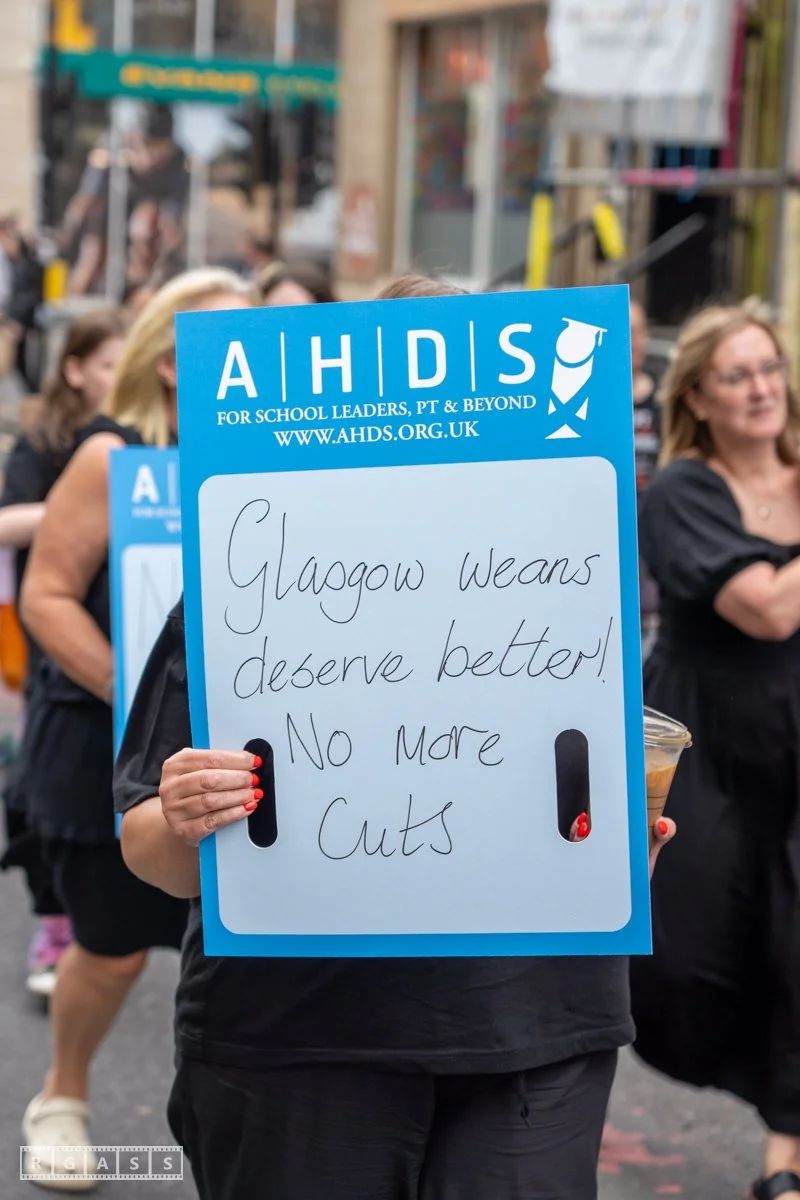 A|H|D|S
FOR SCHOOL LEADERS, PT & BEYOND
WWW.AHDS.ORG.UK
Glasgow weans
deserve better!
No More
Cuts
A
N
RGASS